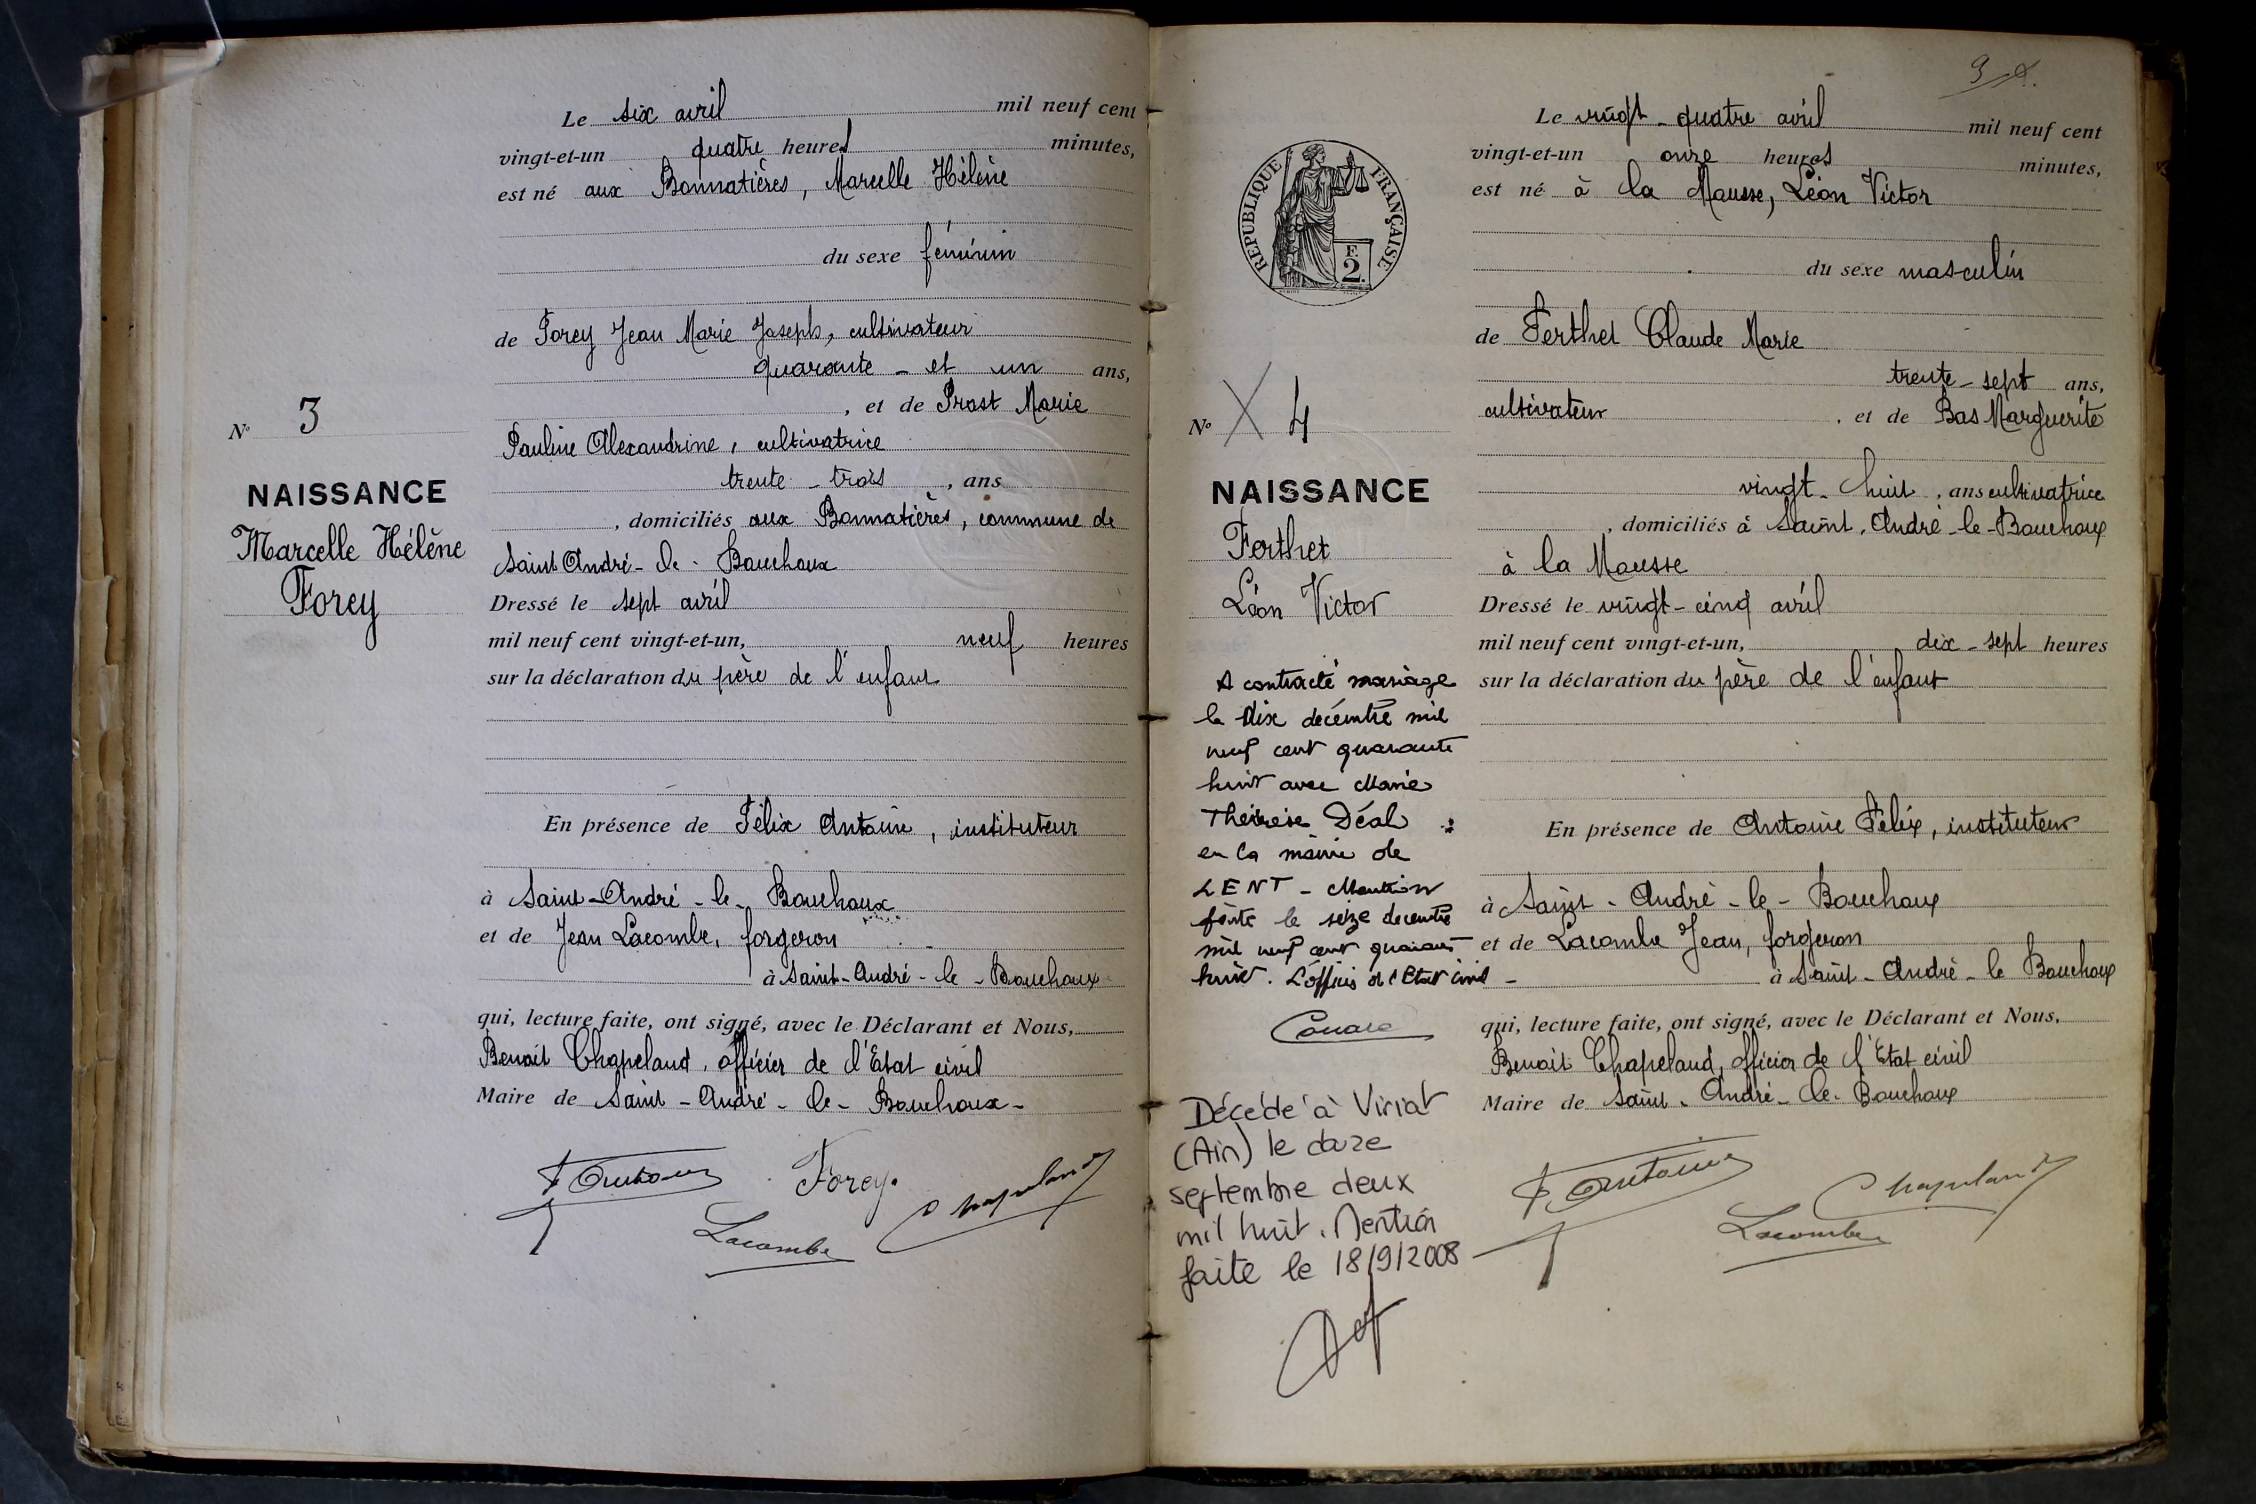 Le six avril mil neuf cent
vingt-et-un quatre heures minutes,
est né aux Bonnatières, Marcelle Hélène
du sexe féminin
de Forey Jean Marie Joseph, cultivateur
quarante - et un ans,
, et de Prost Marie
Pauline Alexandrine, cultivatrice
trente - trois , ans
, domiciliés aux Bonnatières, commune de
Saint André - le - Bouchoux
Dressé le sept avril
mil neuf cent vingt-et-un, neuf heures
sur la déclaration du père de l'enfant
En présence de Félix Antoine, instituteur
à Saint-André-le-Bouchoux
et de Jean Lacombe, forgeron
à Saint-André-le-Bouchoux
qui, lecture faite, ont signé, avec le Déclarant et Nous,
Benoit Chapeland, officier de l'Etat civil
Maire de Saint-André-le-Bouchoux-
N° 3
NAISSANCE
Marcelle Hélène
Forey
F. Antoine Forey. Chapeland
Lacombe
9
RÉPUBLIQUE FRANÇAISE
F.
2.
N° 4
NAISSANCE
Ferthet
Léon Victor
A contracté mariage
le dix décembre mil
neuf cent quarante
huit avec Marie
Thérèse Déal
en la mairie de
LENT - Mention
faite le seize décembre
mil neuf cent quarante
huit. L'officier de l'Etat Civil -
Décédé à Viriat
(Ain) le douze
septembre deux
mil huit. Mention
faite le 18/9/2008
Le vingt-quatre avril mil neuf cent
vingt-et-un onze heures minutes,
est né à la Mausse, Léon Victor
du sexe masculin
de Ferthet Claude Marie
trente-sept ans,
cultivateur , et de Bas Marguerite
vingt-huit , ans cultivatrice
, domiciliés à Saint-André-le-Bouchoux
à la Mousse
Dressé le vingt-cinq avril
mil neuf cent vingt-et-un, dix-sept heures
sur la déclaration du père de l'enfant
En présence de Antoine Félix, instituteur
à Saint-André-le-Bouchoux
et de Lacombe Jean, forgeron
à Saint-André-le Bouchoux
qui, lecture faite, ont signé, avec le Déclarant et Nous,
Benoit Chapeland, officier de l'Etat civil
Maire de Saint-André-le-Bouchoux
F. Antoine Chapeland
Lacombe